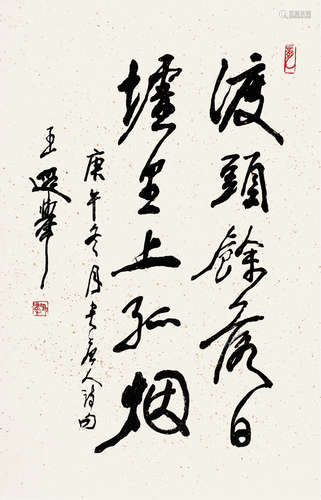 渡頭餘落日
墟里上孤烟
庚午冬月书唐人诗句
王遐舉